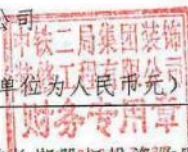 公司
中铁二局集团装饰
装修工程有限公司
单位为人民币元）
财务专用章